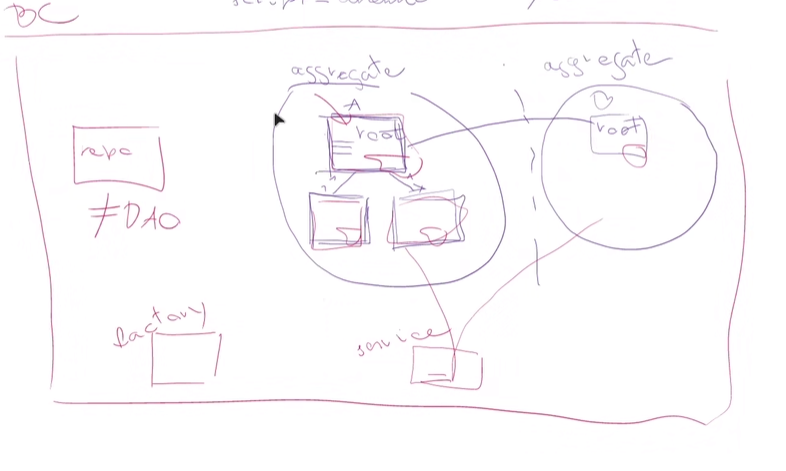 BC
aggregate
aggregate
A
root
root
repo
≠DAO
factory
service